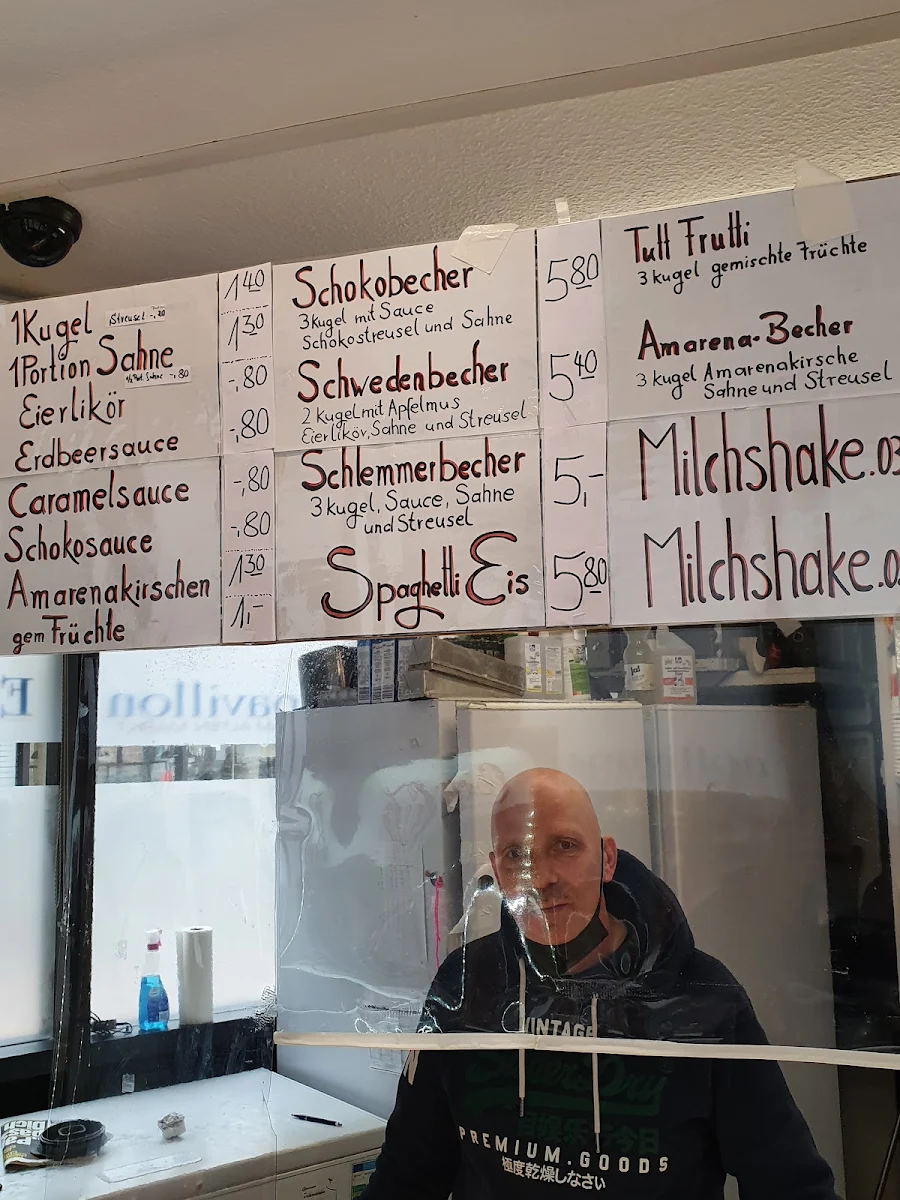 1Kugel Streusel 1 40
1Portion Sahne 1 30
½ Port. Sahne -,80
Eierlikör -,80
Erdbeersauce -,80
Caramelsauce -,80
Schokosauce -,80
Amarenakirschen 1 30
gem Früchte 1,-
Schokobecher 5 80
3 Kugel mit Sauce
Schokostreusel und Sahne
Schwedenbecher 5 40
2 Kugel mit Apfelmus
Eierlikör, Sahne und Streusel
Schlemmerbecher 5,-
3 kugel, Sauce, Sahne
und Streusel
Spaghetti Eis 5 80
Tutt Frutti
3 kugel gemischte Früchte
Amarena-Becher
3 kugel Amarenakirsche
Sahne und Streusel
Milchshake.03
Milchshake.0
pavillon
VINTAGE
PREMIUM.GOODS
極度乾燥しなさい